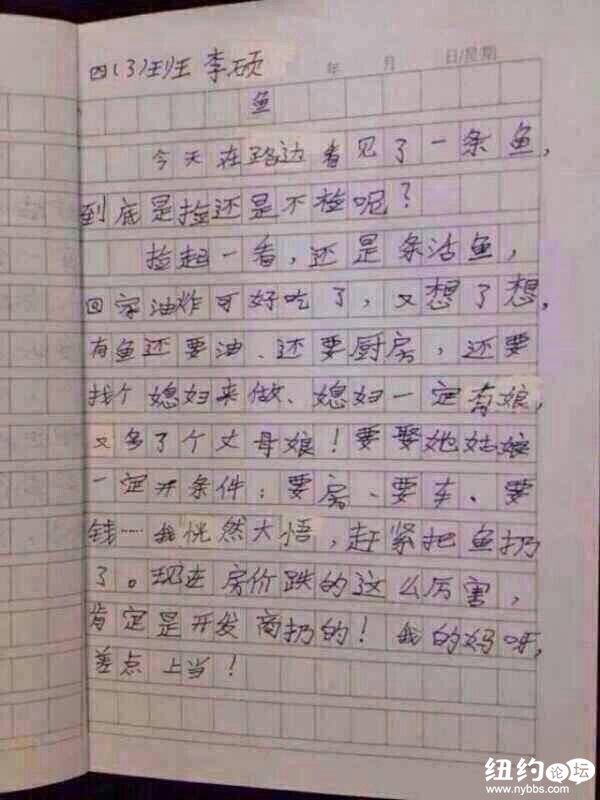 四(3)班 李硕
年 月 日/星期
鱼
今天在路边看见了一条鱼,
到底是捡还是不捡呢?
捡起一看,还是条活鱼,
回家油炸可好吃了,又想了想,
有鱼还要油、还要厨房,还要
找个媳妇来做、媳妇一定有娘,
又多了个丈母娘!要娶她姑娘
一定开条件:要房、要车、要
钱……我恍然大悟,赶紧把鱼扔
了。现在房价跌的这么厉害,
肯定是开发商扔的!我的妈呀,
差点上当!
纽约论坛
www.nybbs.com